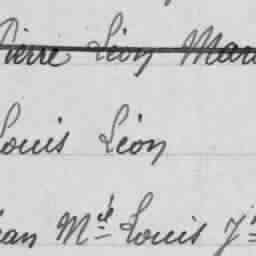 Pierre Léon Mari
Louis Léon
Jean M^el Louis J^h